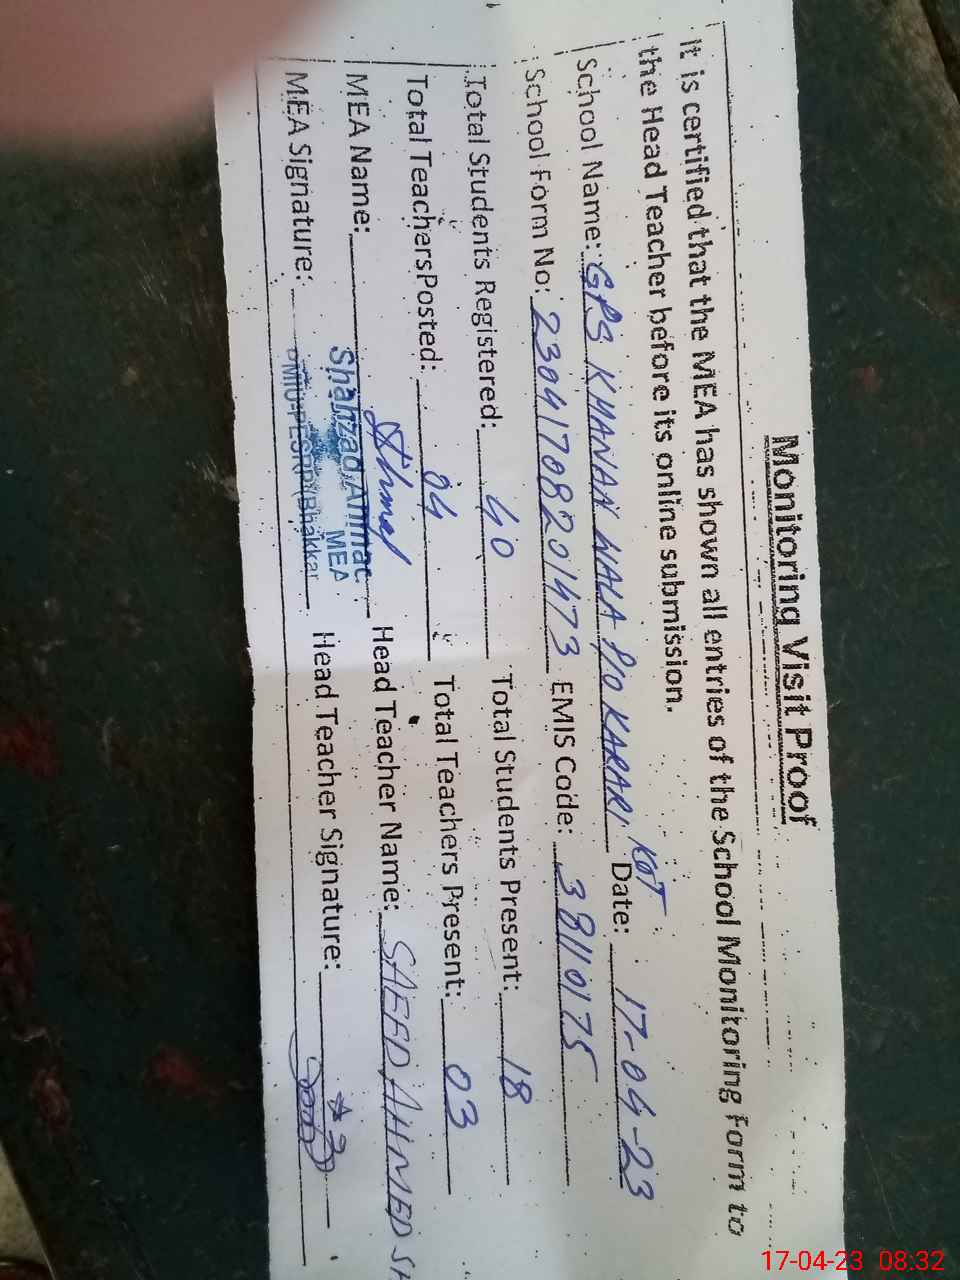 Monitoring Visit Proof
It is certified that the MEA has shown all entries of the School Monitoring Form to
the Head Teacher before its online submission.
School Name: GPS KHANAN WALA P/O KARARI KOT Date: 17-04-23
School Form No: 23041708201473 EMIS Code: 38110175
Total Students Registered: 40 Total Students Present: 18
Total Teachers Posted: 04 Total Teachers Present: 03
MEA Name: Shahzad Ahmad Head Teacher Name: SAEED AHMED SH
MEA
MEA Signature: PMIU-PESRP(Bhakkar Head Teacher Signature:
17-04-23 08:32